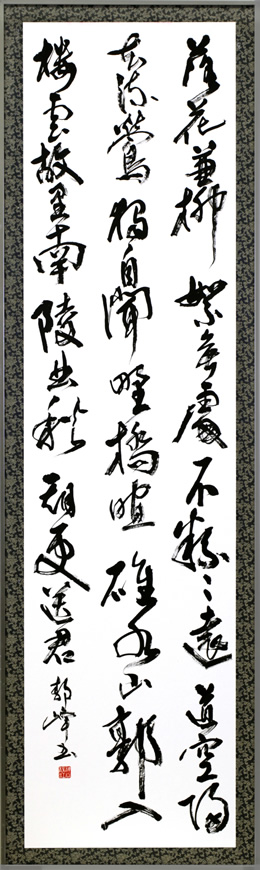 落花兼柳絮無處不紛〻遠道空歸
去流鶯獨自聞野橋喧碓水山郭入
樓雲故里南陵曲秋期更送君 峰書